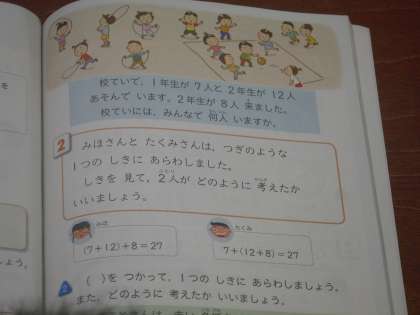 校ていで、1年生が 7人と 2年生が 12人
あそんで います。2年生が 8人 来ました。
校ていには、みんなで 何人 いますか。
2
みほさんと たくみさんは、つぎのような
1つの しきに あらわしました。
しきを 見て、2人が どのように 考えたか
いいましょう。
みほ
(7+12)+8=27
たくみ
7+(12+8)=27
2
( )を つかって、1つの しきに あらわしましょう。
また、どのように 考えたか いいましょう。
を
しょう。